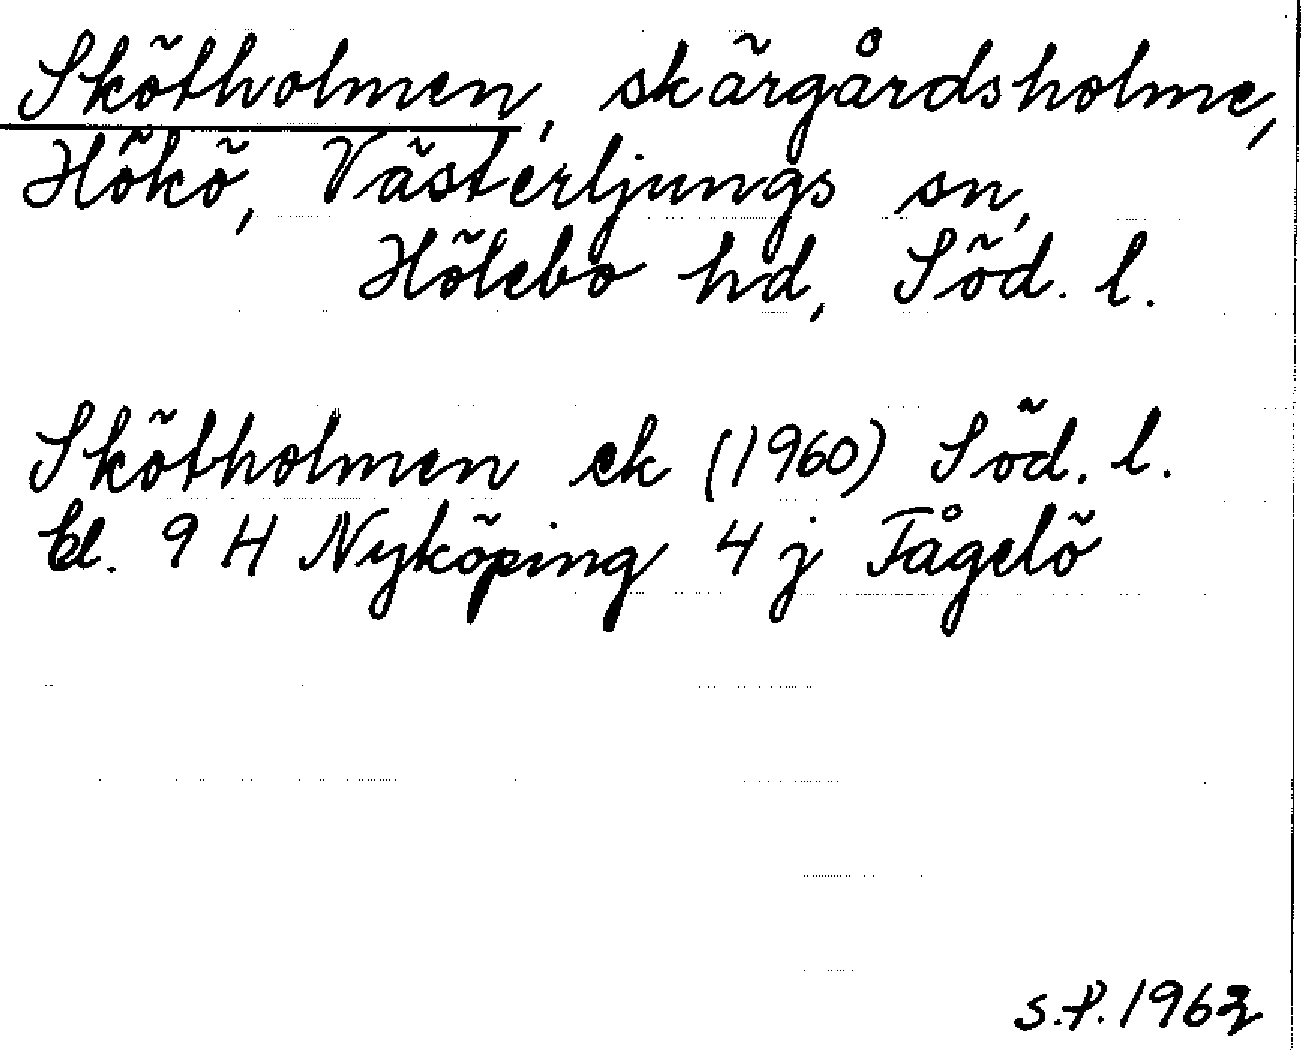 Skötholmen, skärgårdsholme,
Hökö, Västerljungs sn,
Hölebo hd, Söd. l.
Skötholmen ek (1960) Söd. l.
bl. 9 H Nyköping 4 j Fågelö
S.P. 1963